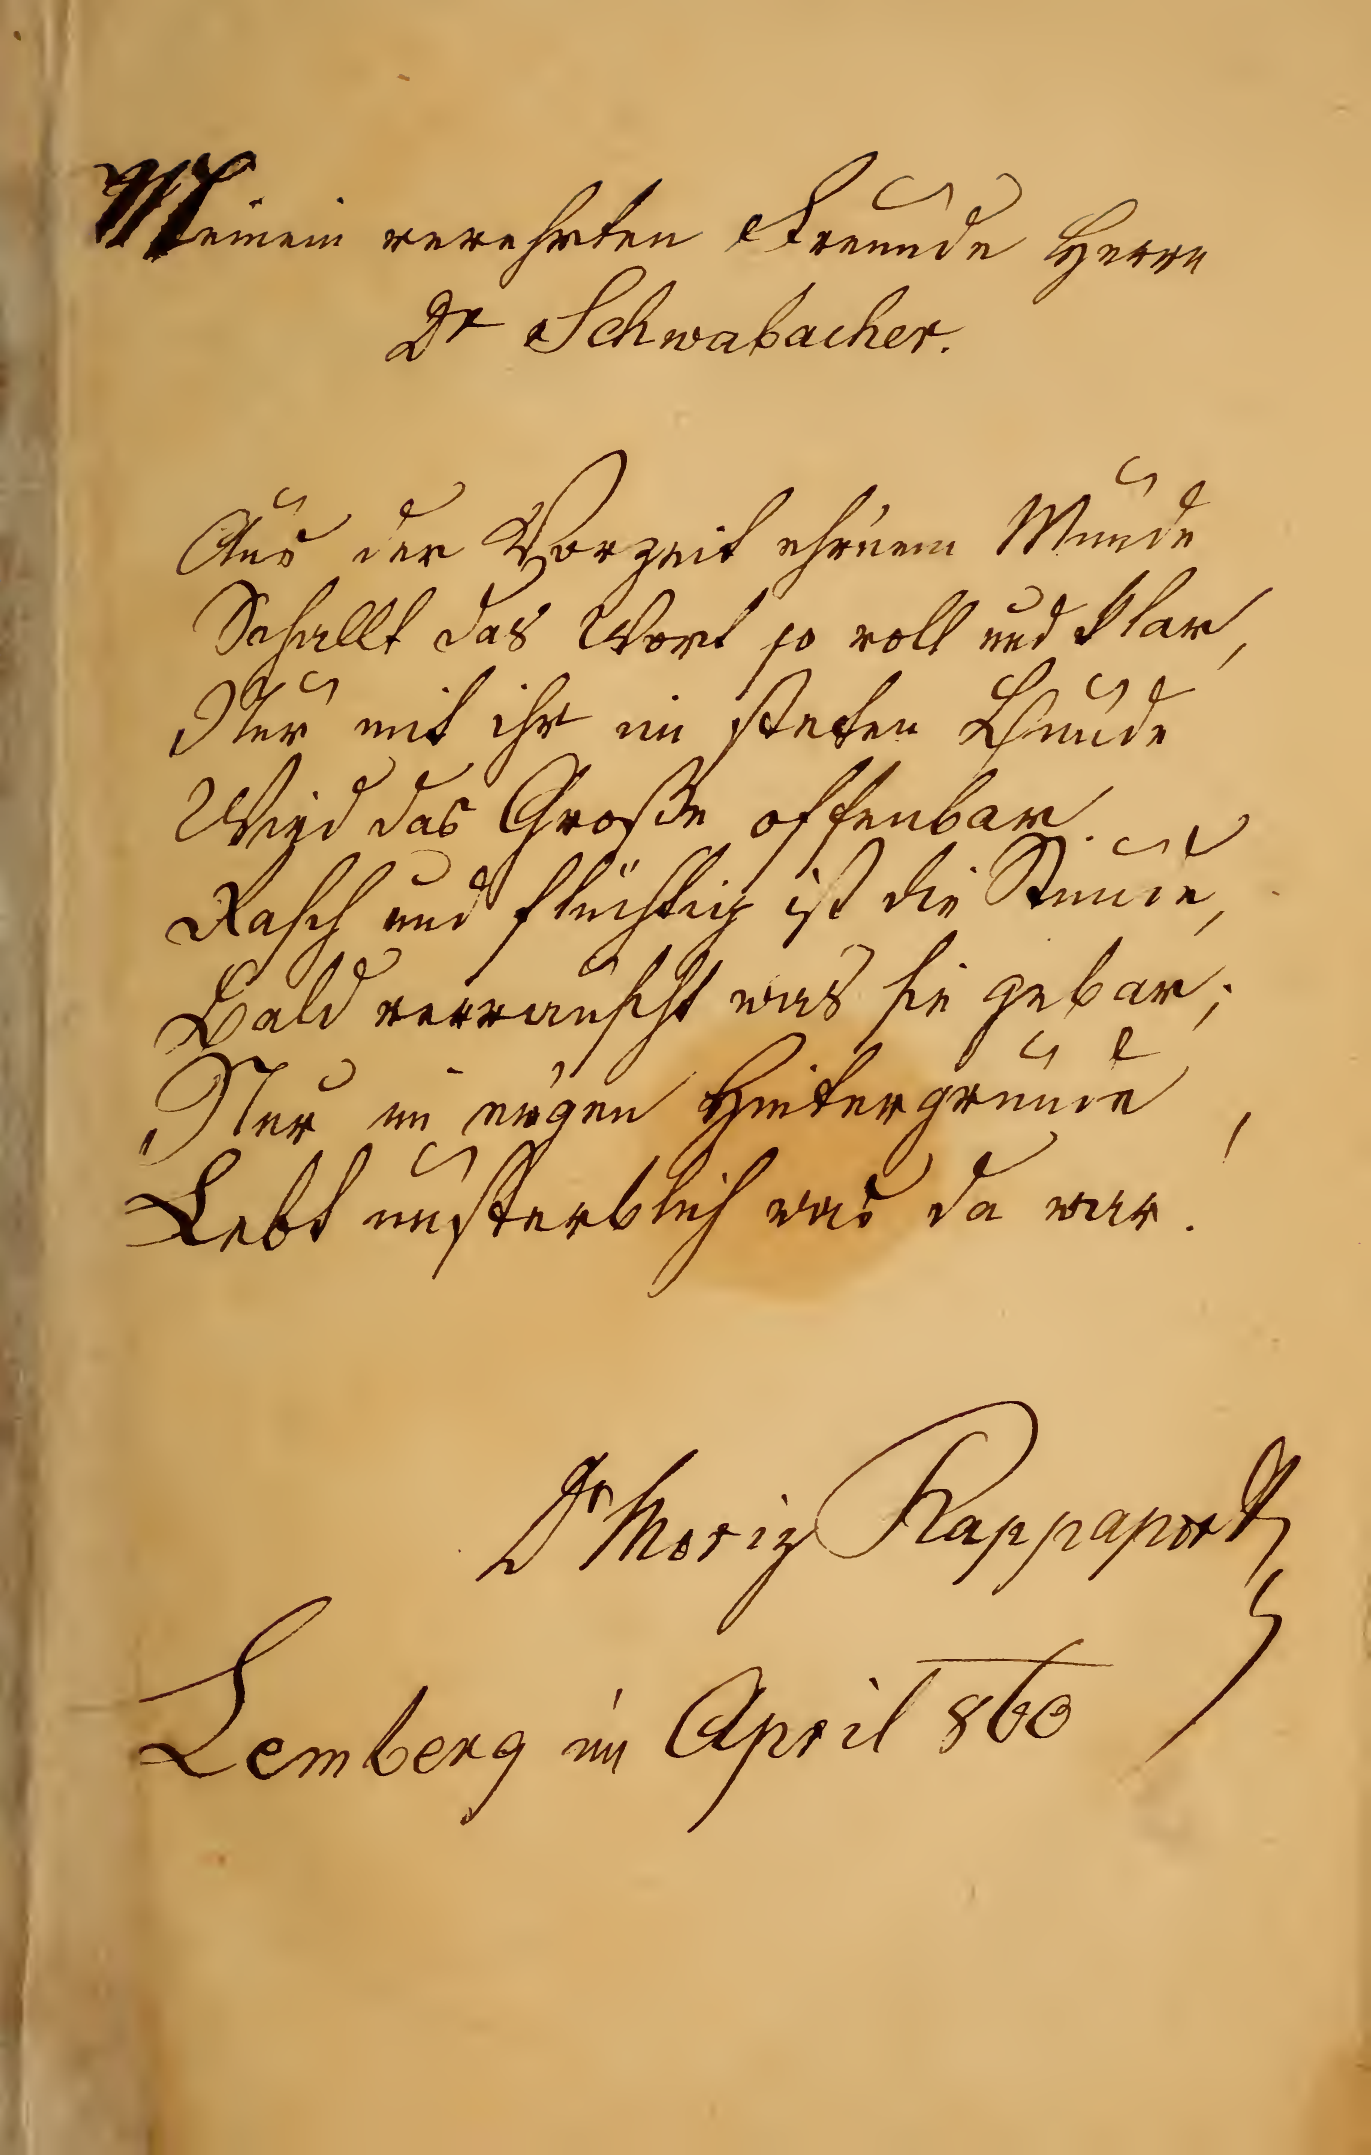 Meinem verehrten Freunde Herrn
Dr Schwabacher.
Aus der Vorzeit ehr'nem Munde
Schallt das Wort so voll und klar,
Nur mit ihr im steten Bunde
Wird das Große offenbar.
Rasch und flüchtig ist die Stunde,
Bald verrauscht was sie gebar;
Nur im ew'gen Hintergrunde,
Lebt unsterblich was da war.
Dr Moriz Rappaport
Lemberg im April 860